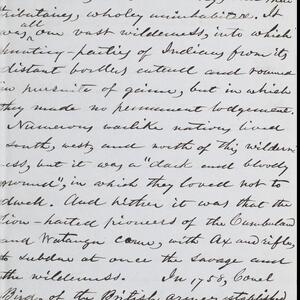 tributaries, wholly uninhabited. It
was, all one vast wilderness, into which
hunting-parties of Indians from its
distant borders entered and roamed
in pursuit of game, but in which
they made no permanent lodgement.
Numerous warlike nations lived
south, west and north of this wildern
ess, but it was a "dark and bloody
ground", in which they loved not to
dwell. And hither it was that the
lion-hearted pioneers of the Cumberlan
and Watauga came, with Ax and rifle,
to subdue at once the savage and
the wilderness. In 1758, Conel
Bird, of the British army, establish